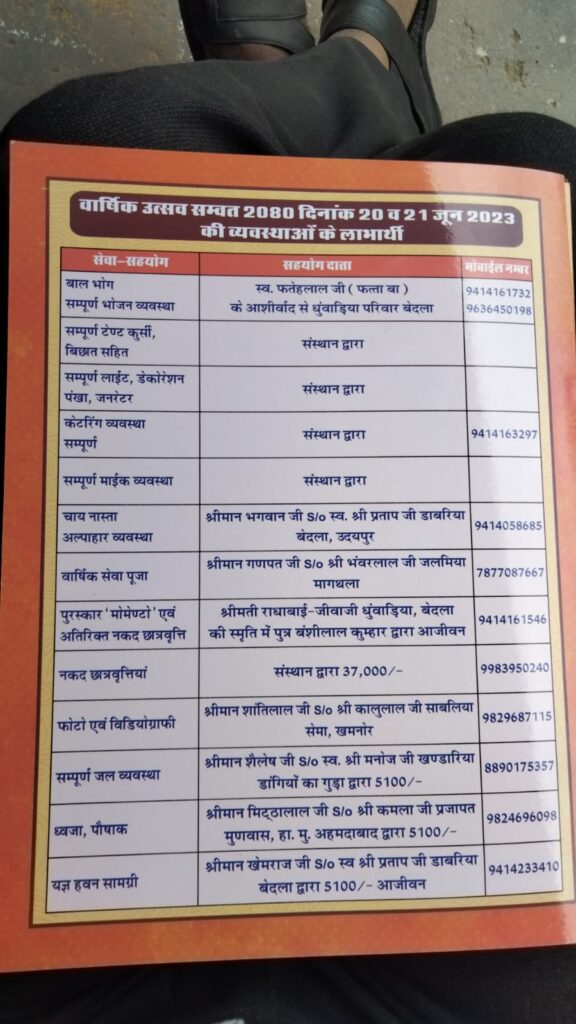 वार्षिक उत्सव सम्वत 2080 दिनांक 20 व 21 जून 2023
की व्यवस्थाओं के लाभार्थी
सेवा-सहयोग सहयोग दाता मोबाईल नम्बर
बाल भोग स्व. फतेहलाल जी ( फत्ता बा ) 9414161732
सम्पूर्ण भोजन व्यवस्था के आशीर्वाद से धुंवाड़िया परिवार बेदला 9636450198
सम्पूर्ण टेण्ट कुर्सी,
बिछात सहित
संस्थान द्वारा
सम्पूर्ण लाईट, डेकोरेशन
पंखा, जनरेटर
संस्थान द्वारा
केटरिंग व्यवस्था
सम्पूर्ण
संस्थान द्वारा 9414163297
सम्पूर्ण माईक व्यवस्था संस्थान द्वारा
चाय नास्ता
अल्पाहार व्यवस्था
श्रीमान भगवान जी S/o स्व. श्री प्रताप जी डाबरिया
बेदला, उदयपुर
9414058685
वार्षिक सेवा पूजा
श्रीमान गणपत जी S/o श्री भंवरलाल जी जलमिया
मागथला
7877087667
पुरस्कार 'मोमेण्टो' एवं
अतिरिक्त नकद छात्रवृत्ति
श्रीमती राधाबाई-जीवाजी धुंवाड़िया, बेदला
की स्मृति में पुत्र बंशीलाल कुम्हार द्वारा आजीवन
9414161546
नकद छात्रवृत्तियां संस्थान द्वारा 37,000/- 9983950240
फोटो एवं विडियोग्राफी
श्रीमान शांतिलाल जी S/o श्री कालुलाल जी साबलिया
सेमा, खमनोर
9829687115
सम्पूर्ण जल व्यवस्था
श्रीमान शैलेष जी S/o स्व. श्री मनोज जी खण्डारिया
डांगियों का गुड़ा द्वारा 5100/-
8890175357
ध्वजा, पौषाक
श्रीमान मिट्ठालाल जी S/o श्री कमला जी प्रजापत
मुणवास, हा. मु. अहमदाबाद द्वारा 5100/-
9824696098
यज्ञ हवन सामग्री
श्रीमान खेमराज जी S/o स्व श्री प्रताप जी डाबरिया
बेदला द्वारा 5100/- आजीवन
9414233410